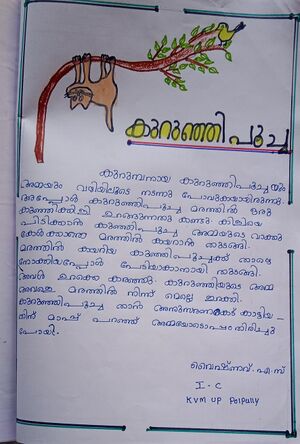 കുറുഞ്ഞിപൂച്ച
കുറുമ്പനായ കുറുഞ്ഞിപൂച്ചയും
അമ്മയും വഴിയിലൂടെ നടന്നു പോവുകയായിരുന്നു.
അപ്പോൾ കുറുഞ്ഞിപൂച്ച മരത്തിൽ ഒരു
കുഞ്ഞിക്കിളി ഉറങ്ങുന്നതു കണ്ടു. കിളിയെ
പിടിക്കാൻ കുറുഞ്ഞിപൂച്ച അമ്മയുടെ വാക്കു
കേൾക്കാതെ മരത്തിൽ കയറാൻ തുടങ്ങി.
മരത്തിൽ കയറിയ കുറുഞ്ഞിപൂച്ചക്ക് താഴെ
നോക്കിയപ്പോൾ പേടിയാകാനായി തുടങ്ങി.
അവൾ ഉറക്കെ കരഞ്ഞു. കുറുഞ്ഞിയുടെ അമ്മ
അവളെ മരത്തിൽ നിന്ന് മെല്ലെ ഇറക്കി.
കുറുഞ്ഞിപൂച്ച താൻ അനുസരണക്കേട് കാട്ടിയ-
തിന് മാപ്പ് പറഞ്ഞ് അമ്മയോടൊപ്പം തിരിച്ചു
പോയി.
വൈഷ്ണവ്. എ.സ്
I. C
KVM UP Polpully